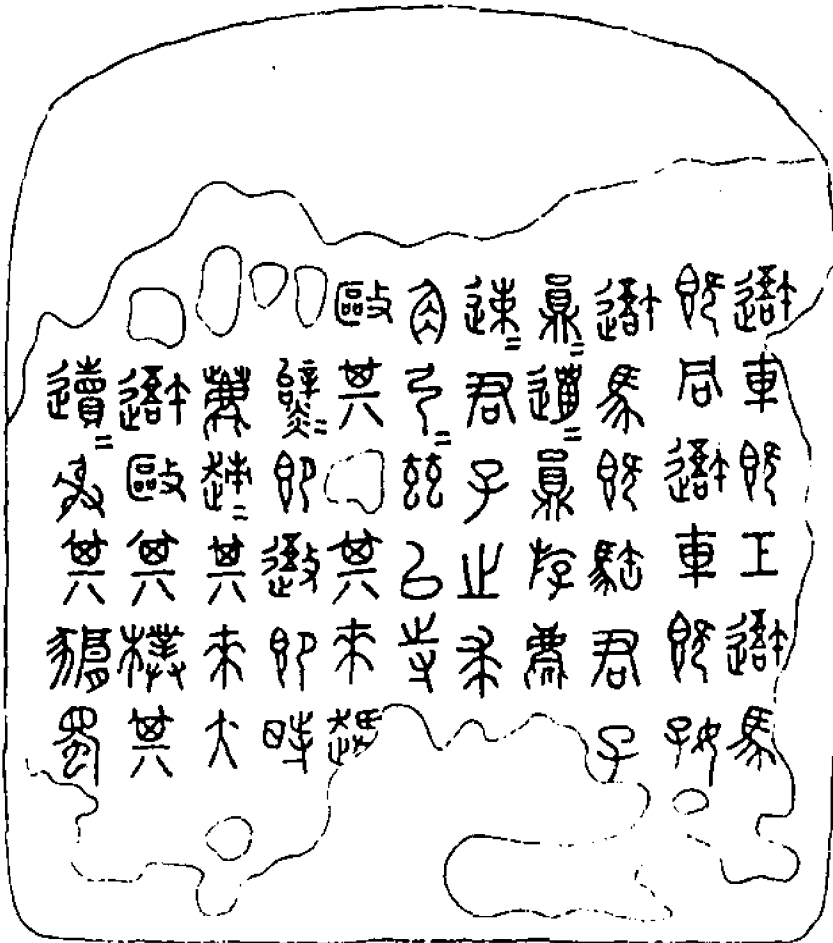 吾車既工吾馬
既同吾車既好
吾馬既𩣡君子
員=邋=員斿麀
速=君子之求
角弓=茲以寺
敺其其來趩
即即時
鹿趚=其來大
吾敺其樸其
𨘌=射其豜蜀